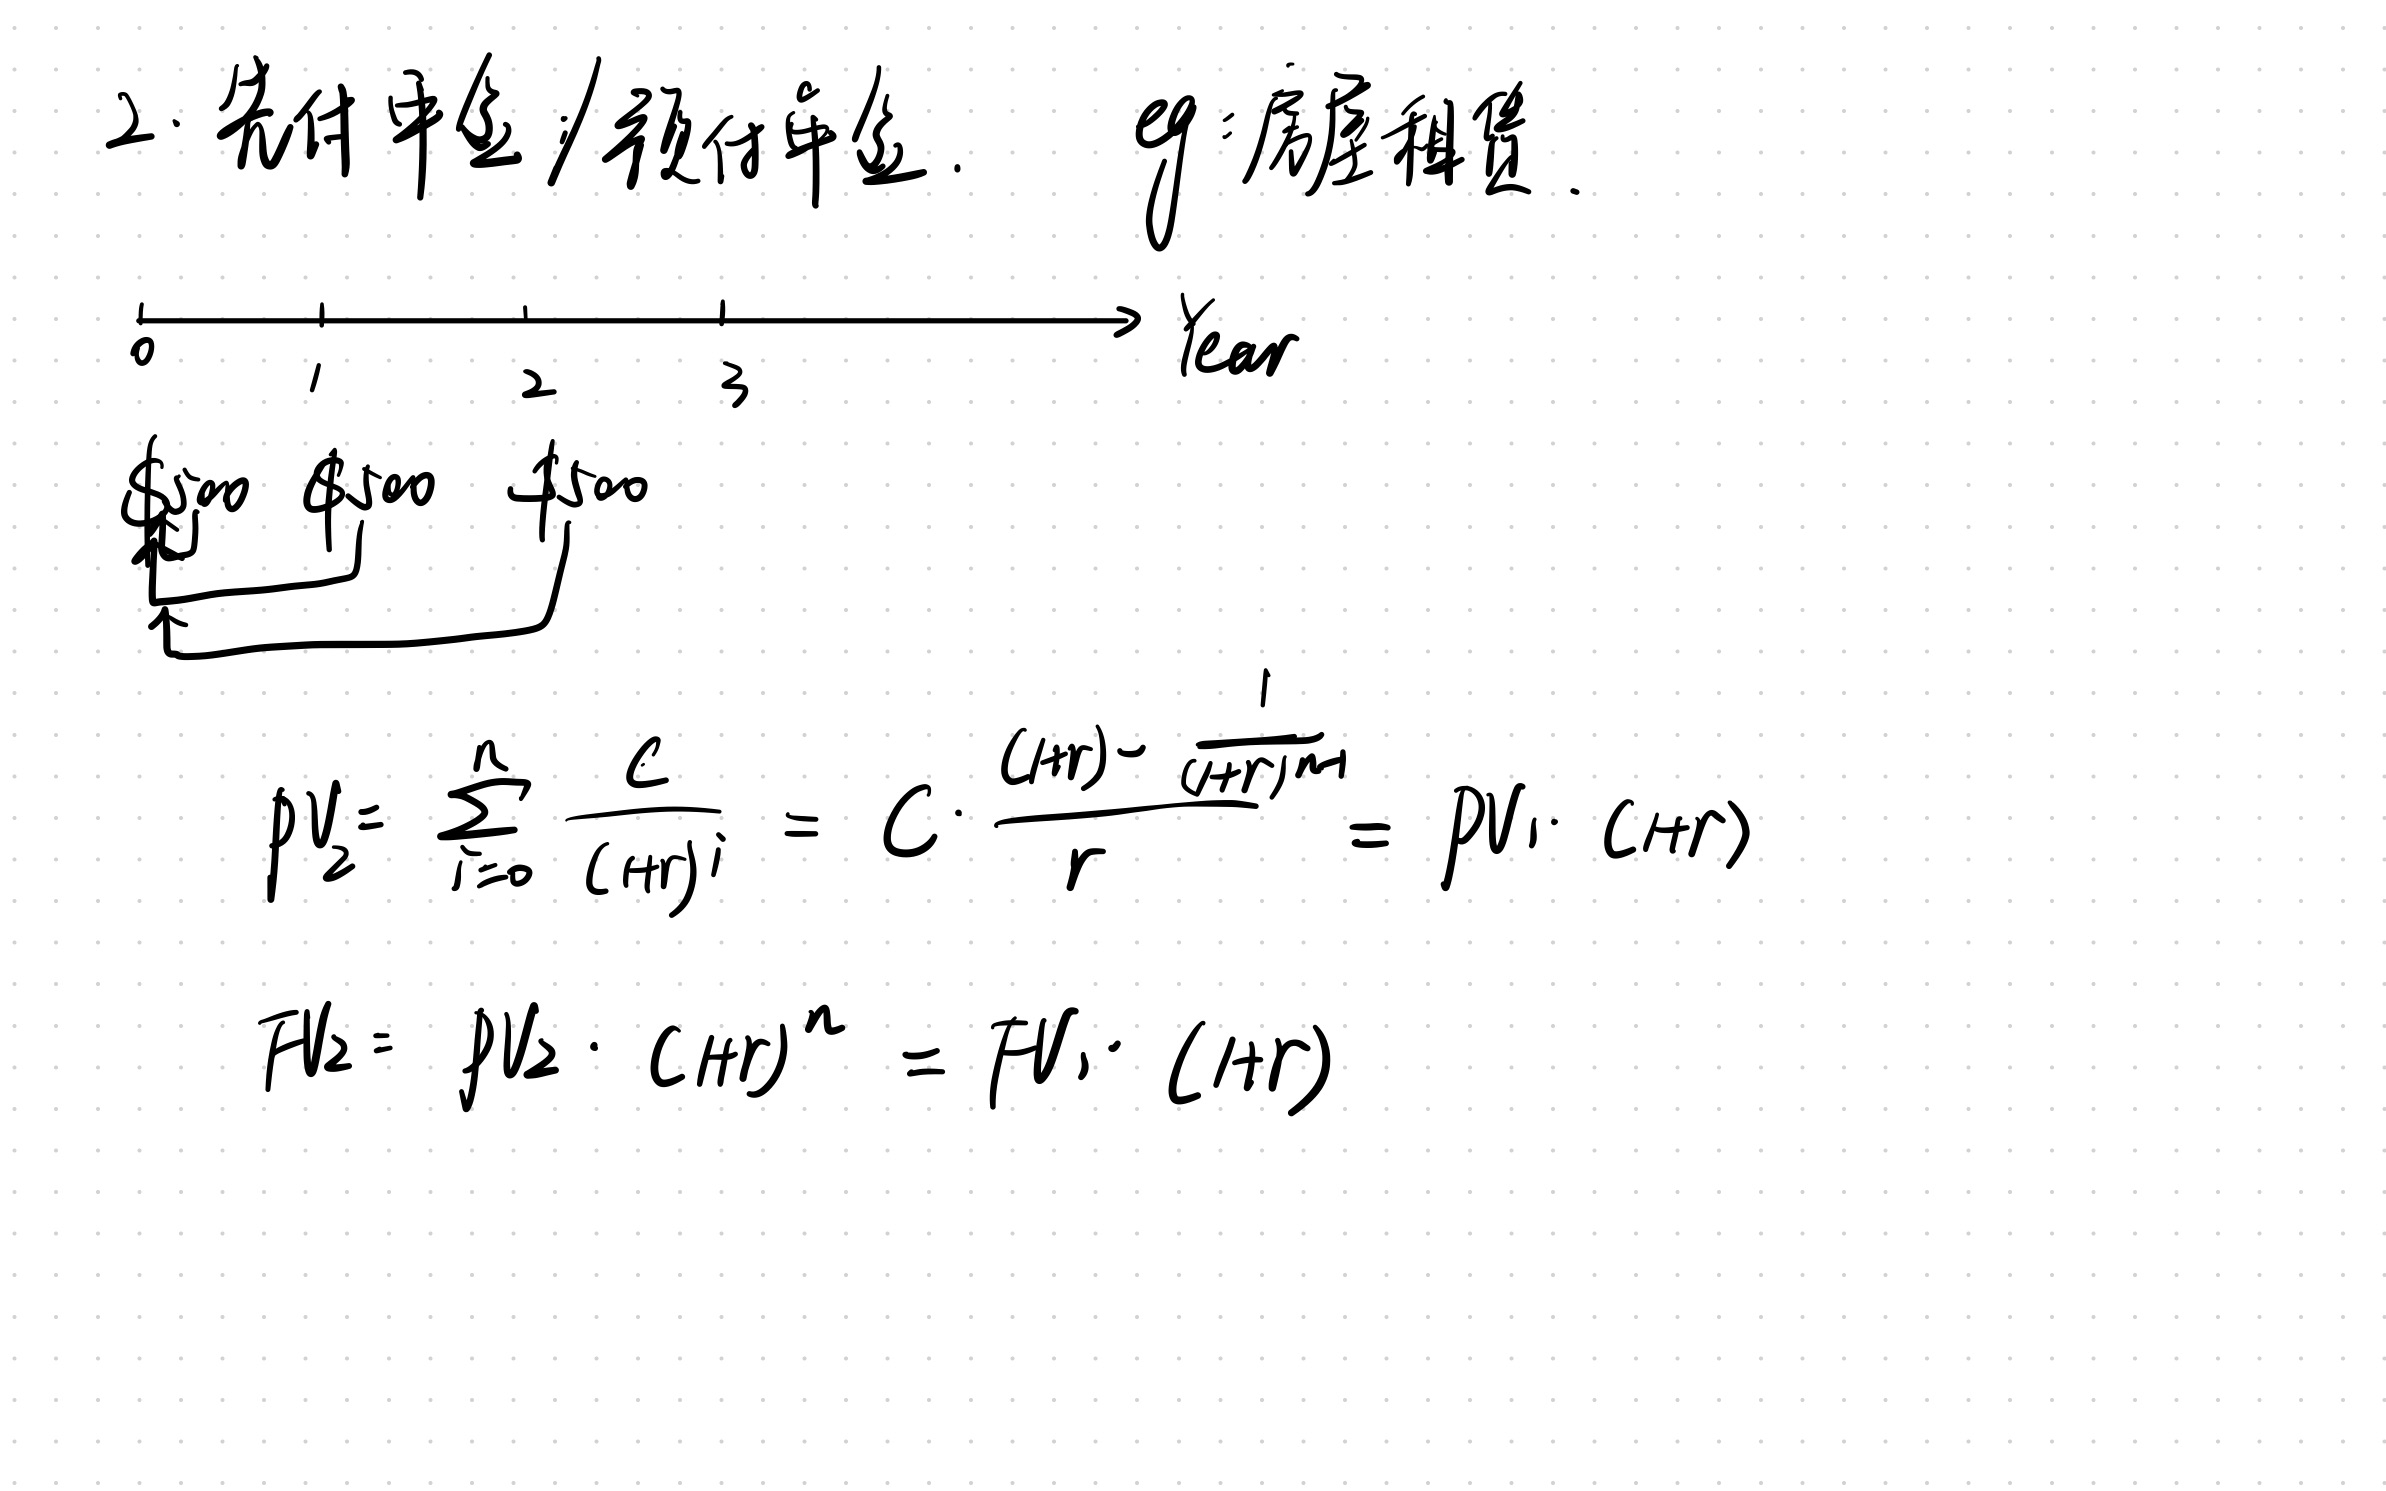 2. 先付年金/预付年金. eg: 房屋租赁.
0 1 2 3 Year
$500 $500 $500
PV₂ = \sum_{i=0}^{n} \frac{C}{(1+r)^i} = C · \frac{(1+r) - \frac{1}{(1+r)^{n-1}}}{r} = PV₁ · (1+r)
FV₂ = PV₂ · (1+r)^n = FV₁ · (1+r)